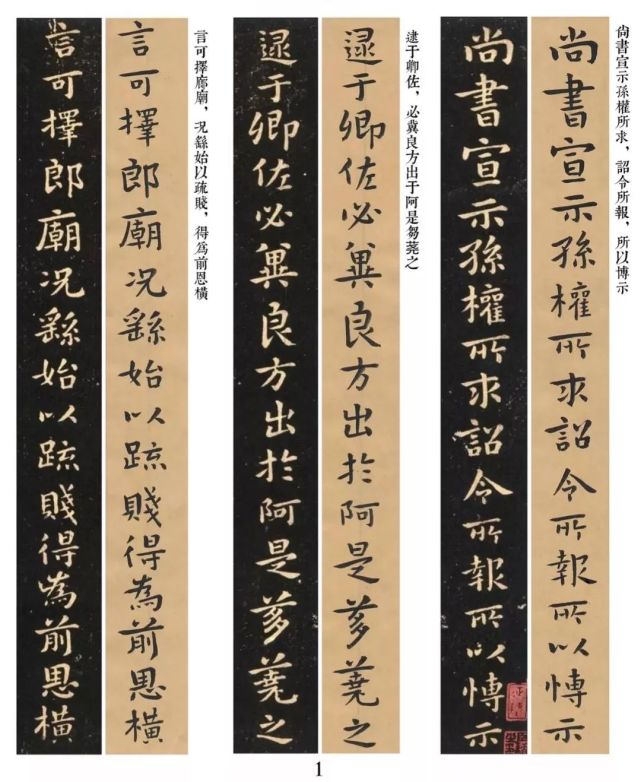 尚書宣示孫權所求，詔令所報，所以博示
尚書宣示孫權所求詔令所報所以愽示
尚書宣示孫權所求詔令所報所以愽示
逮于卿佐，必冀良方出于阿是芻蕘之
逮于卿佐必冀良方出於阿是芻蕘之
逮于卿佐必冀良方出於阿是芻蕘之
言可擇廊廟，况繇始以疏賤，得爲前恩橫
言可擇郎廟况繇始以疏賤得為前恩橫
言可擇郎廟况繇始以疏賤得為前恩橫
1